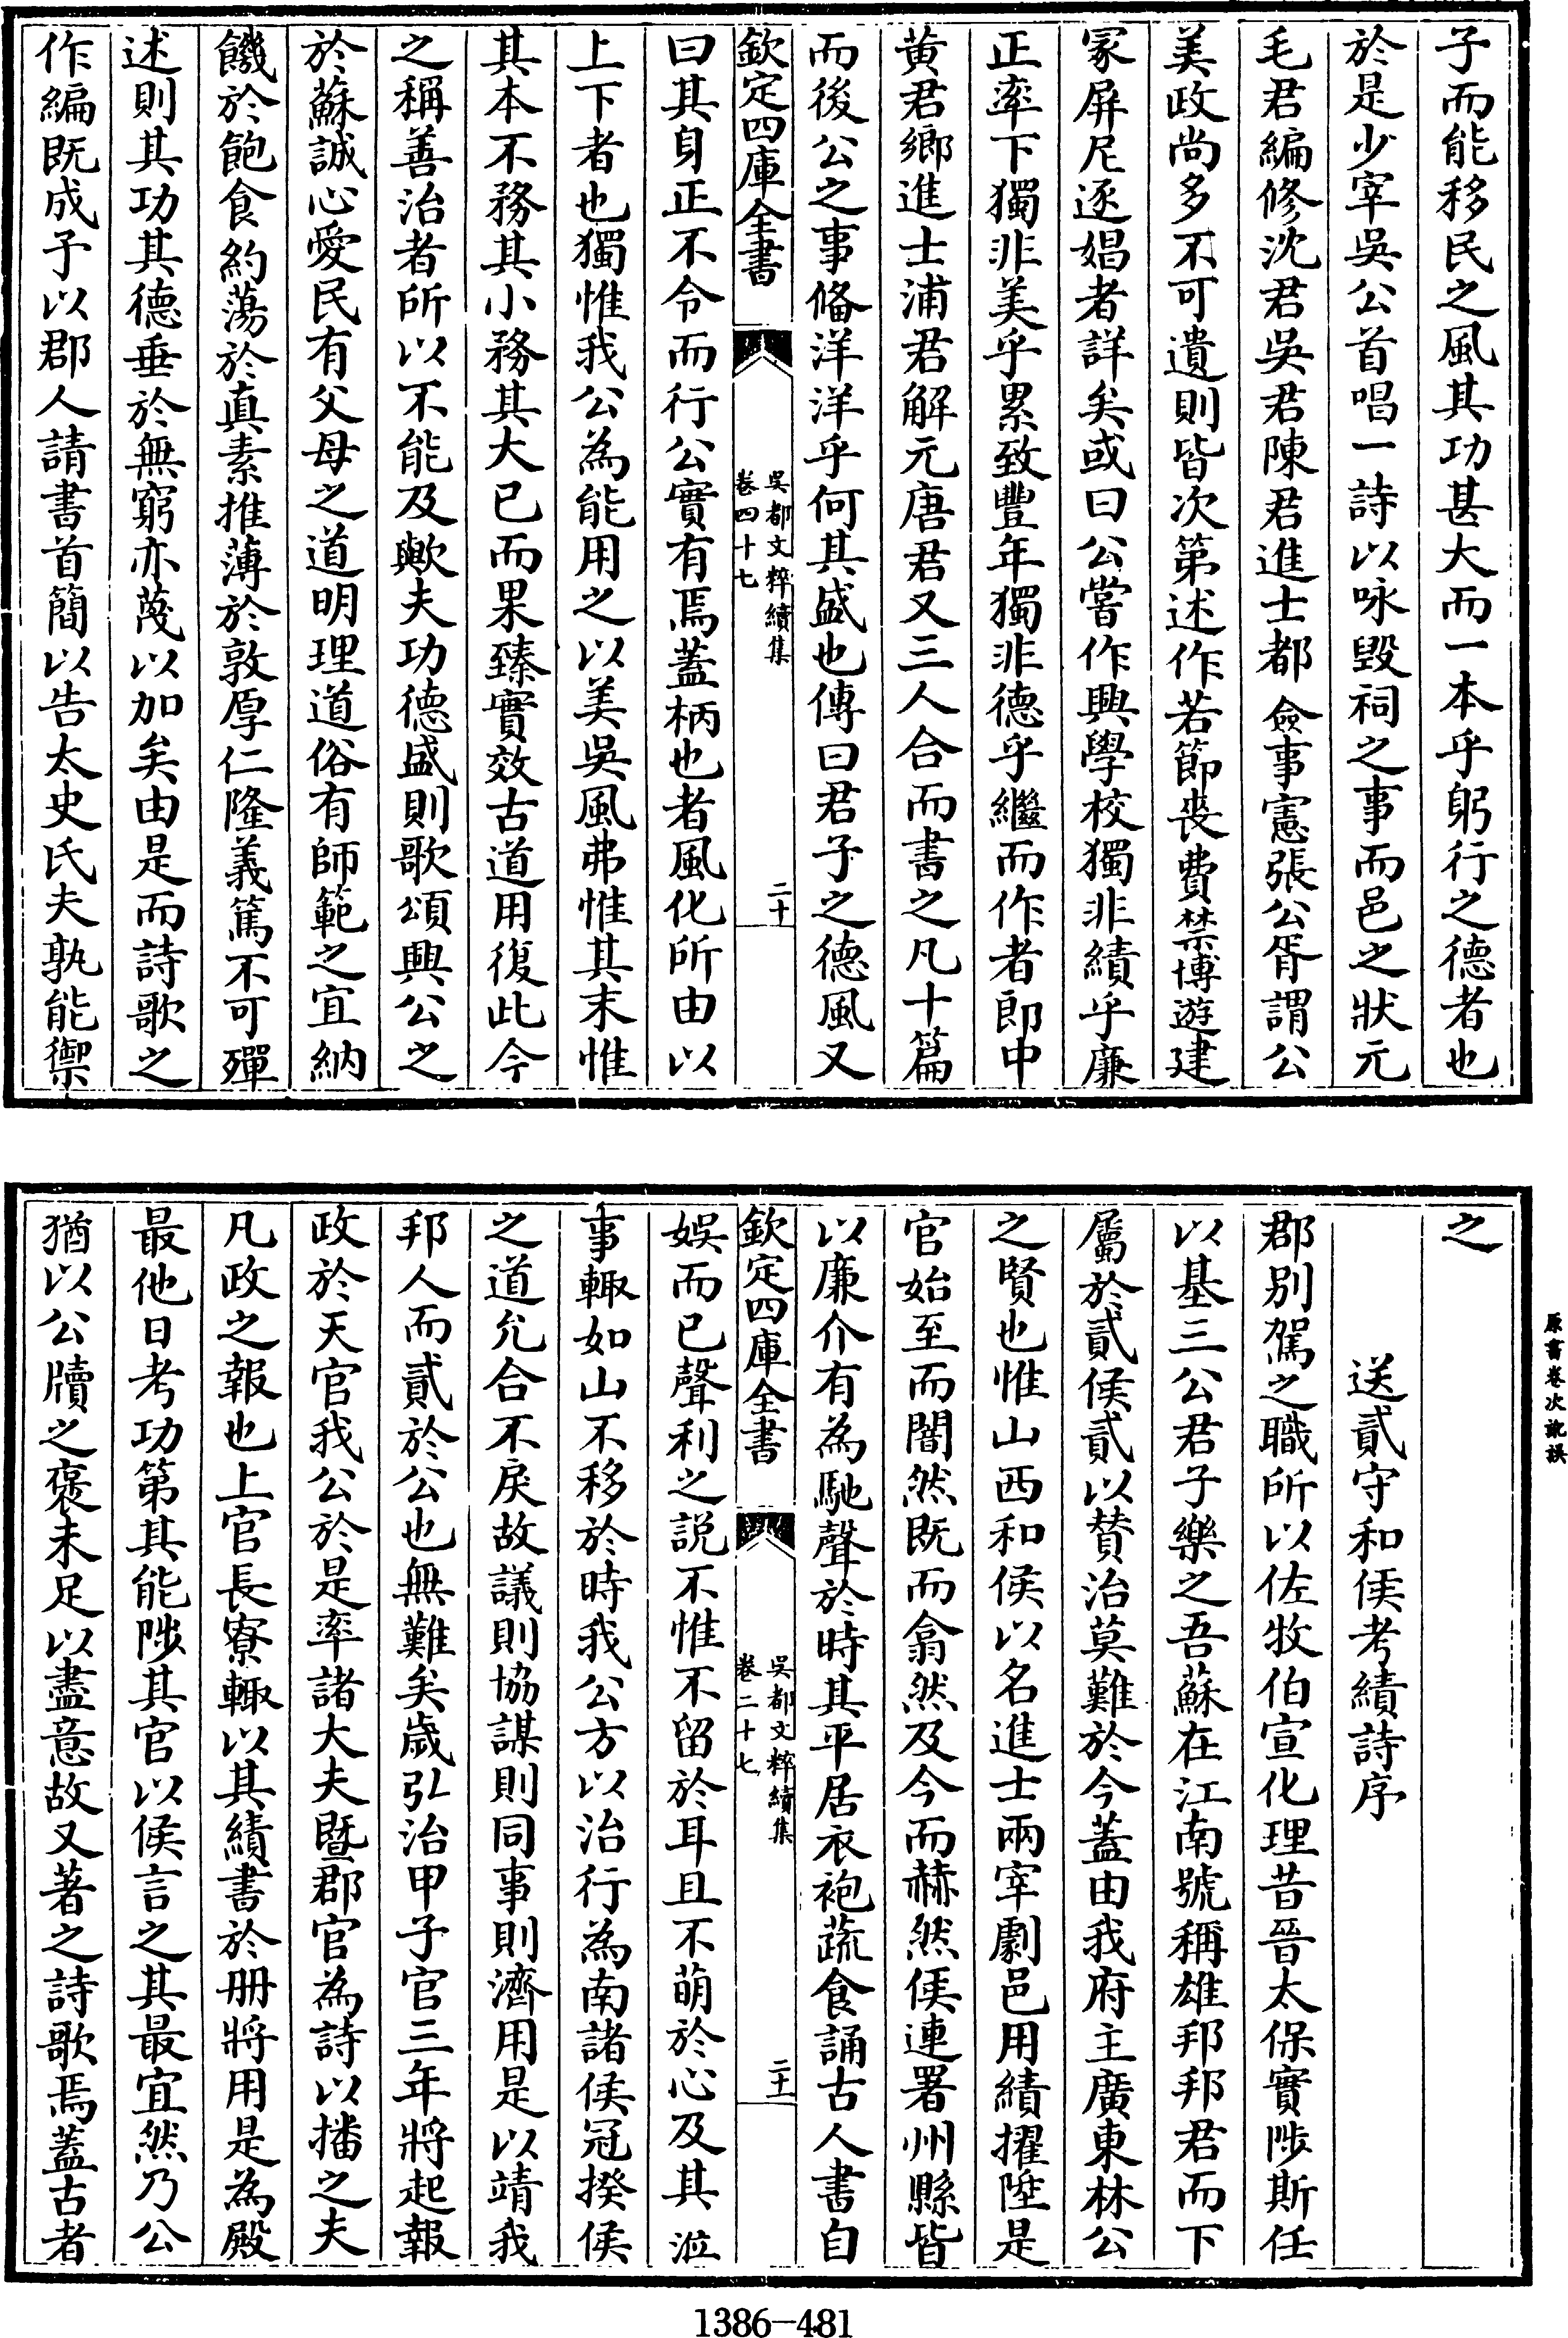 子而能移民之風其功甚大而一本乎躬行之德者也
於是少宰吳公首唱一詩以咏毀祠之事而邑之狀元
毛君編修沈君吳君陳君進士都僉事憲張公胥謂公
美政尚多不可遺則皆次第述作若節喪費禁博遊建
冢屏尼逐娼者詳矣或曰公嘗作興學校獨非績乎廉
正率下獨非美乎累致豐年獨非德乎繼而作者郎中
黄君鄉進士浦君解元唐君又三人合而書之凡十篇
而後公之事偹洋洋乎何其盛也傳曰君子之德風又
欽定四庫全書
吳都文粹續集
卷四十七
二十
曰其身正不令而行公實有焉蓋柄也者風化所由以
上下者也獨惟我公為能用之以美吳風弗惟其末惟
其本不務其小務其大已而果臻實效古道用復此今
之稱善治者所以不能及歟夫功德盛則歌頌興公之
於蘇誠心愛民有父母之道明理道俗有師範之宜納
饑於飽食約蕩於真素推薄於敦厚仁隆義篤不可殫
述則其功其德垂於無窮亦蔑以加矣由是而詩歌之
作編既成予以郡人請書首簡以告太史氏夫孰能禦
之
送貳守和侯考績詩序
郡別駕之職所以佐牧伯宣化理昔晉太保實陟斯任
以基三公君子樂之吾蘇在江南號稱雄邦邦君而下
屬於貳侯貳以賛治莫難於今蓋由我府主廣東林公
之賢也惟山西和侯以名進士兩宰劇邑用績擢陞是
官始至而闇然既而翕然及今而赫然侯連署州縣皆
以廉介有為馳聲於時其平居衣袍蔬食誦古人書自
欽定四庫全書
吳都文粹續集
卷二十七
二十一
娯而已聲利之説不惟不留於耳且不萌於心及其涖
事輙如山不移於時我公方以治行為南諸侯冠揆侯
之道允合不戾故議則協謀則同事則濟用是以靖我
邦人而貳於公也無難矣歲弘治甲子官三年將起報
政於天官我公於是率諸大夫暨郡官為詩以播之夫
凡政之報也上官長寮輙以其績書於册將用是為殿
最他日考功第其能陟其官以侯言之其最宜然乃公
猶以公牘之褒未足以盡意故又著之詩歌焉蓋古者
原書卷次訛誤
1386-481